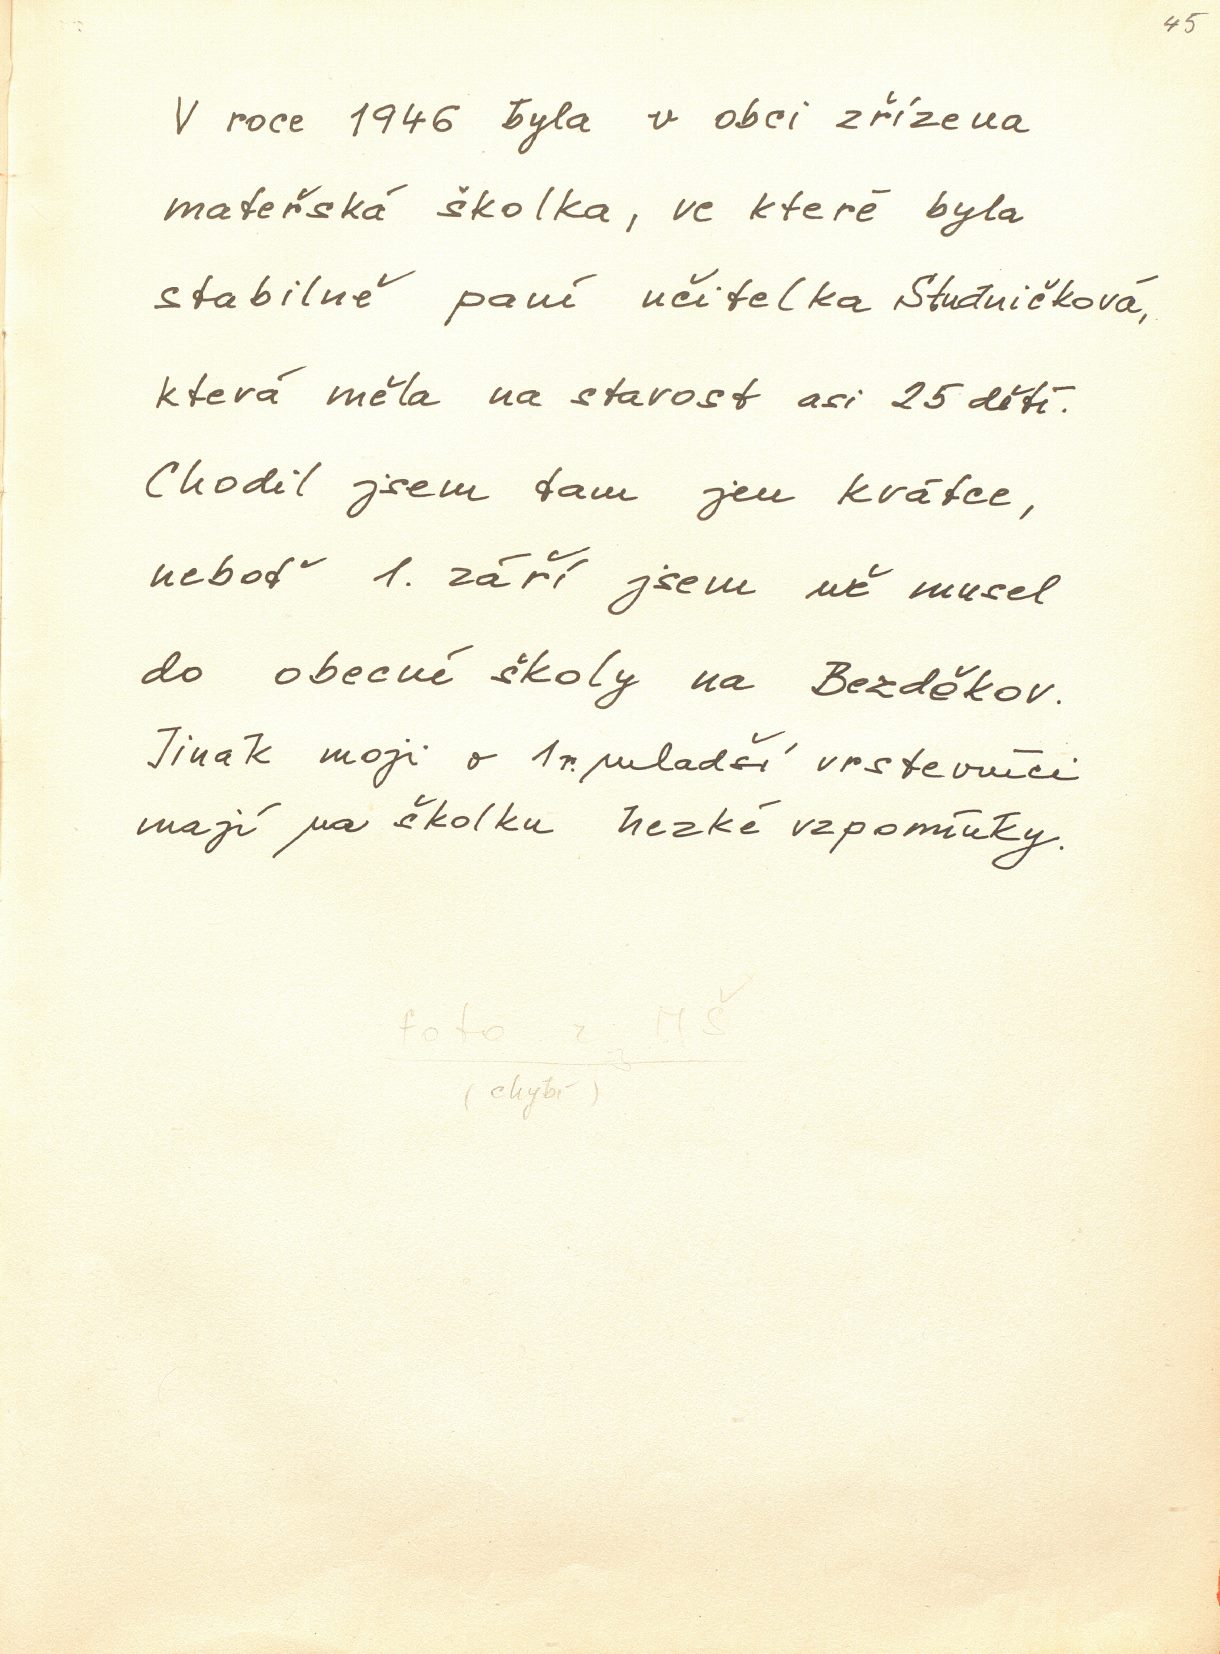 45
V roce 1946 byla v obci zřízena
mateřská školka, ve které byla
stabilně paní učitelka Studničková,
která měla na starost asi 25 dětí.
Chodil jsem tam jen krátce,
neboť 1. září jsem už musel
do obecné školy na Bezděkov.
Jinak moji o 1 r. mladší vrstevníci
mají na školku hezké vzpomínky.
foto z MŠ
(chybí)